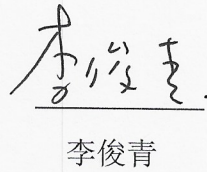 李俊青
李俊青